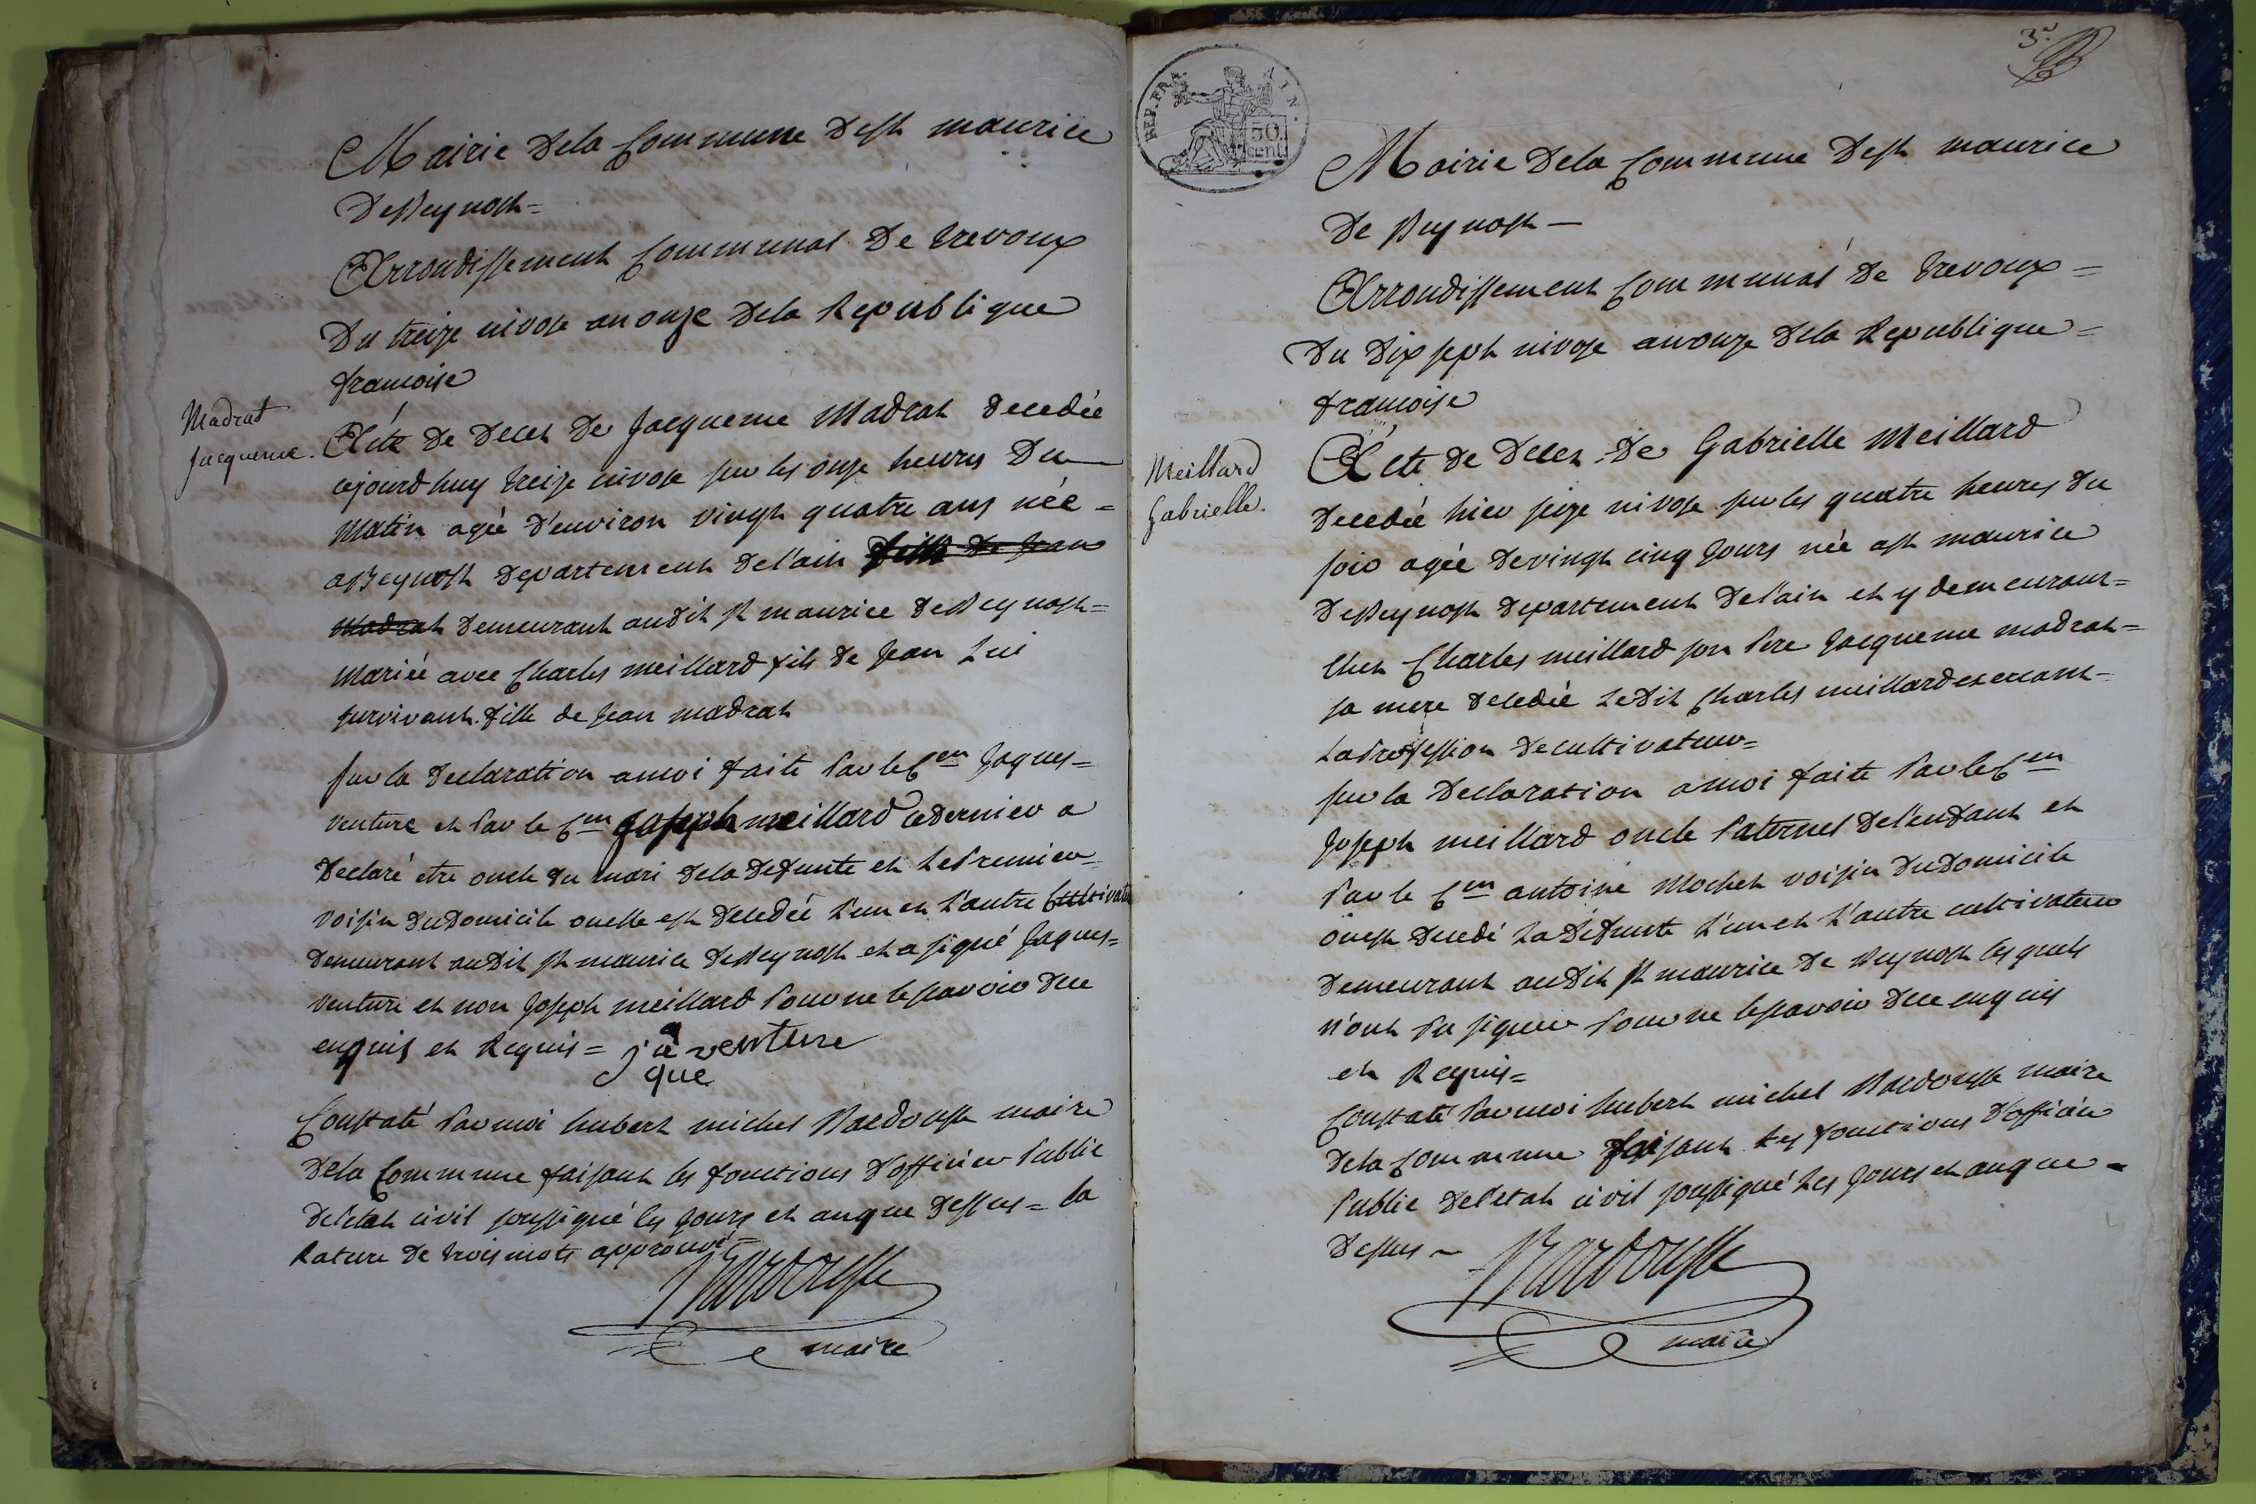 Mairie Dela Commune Dest maurice
DeBeynost =
Arrondissement Communal De trevoux
Du treize nivose an onze Dela Republique
francoise
Madrat
Jacqueme.
Acte De Deces De Jacqueme Madrat Decedée
cejourdhuy treize nivose sur les onze heures Du
Matin agée d'environ vingt quatre ans née =
aBeynost Departement Del'ain fille De Jean
Madrat Demeurant audit st maurice DeBeynost =
Mariée avec Charles meillard fils de Jean Lui
survivant. fille de Jean madrat
sur la Declaration amoi faite Par le Cen Jaques =
venture et Par le Cen Joseph meillard ce Dernier a
Declaré etre oncle du mari Dela Defunte et Le Premier
voisin Du Domicile ou elle est Decedée L'un et L'autre Cultivateur
Demeurant au Dit st maurice DeBeynost et a signé Jaques =
venture et non Joseph meillard Pour ne le savoir Due
enquis et Requis = j'a venture
que
Constaté Par moi hubert michel Bardousse maire
Dela Commune faisant les fonctions D'officier Public
Del'etat civil soussigné les Jours et an que Dessus = la
Rature De trois mots approuvé =
Bardousse
maire
3e
REP. FRA.
AIN.
50.
cent.
Mairie Dela Commune Dest maurice
De Beynost —
Arrondissement Communal de trevoux =
Du Dix sept nivose an onze Dela Republique =
francoise
Meillard
Gabrielle.
Acte de Deces De Gabrielle Meillard
Decedée hier seize nivose sur les quatre heures du
soir agée De vingt cinq Jours née ast maurice
DeBeynost Departement Del'ain et y demeurant =
Chez Charles meillard son Pere Jacqueme madrat =
sa mere Decedée Le Dit Charles meillard exercant =
La Profession De cultivateur =
sur la Declaration amoi faite Par le Cen
Joseph meillard oncle Paternel Del'enfant et
Par le Cen antoine Mochet voisin Du Domicile
ou est Decedé La Defunte L'un et L'autre cultivateur
Demeurant au Dit st maurice De Beynost les quels
n'ont Pu signer Pour ne le savoir Due enquis
et Requis =
Constaté Par moi hubert michel Bardousse maire
Dela commune faisant Les fonctions D'officier
Public Del'etat civil soussigné Les Jours et an que =
Dessus ~ Bardousse
maire